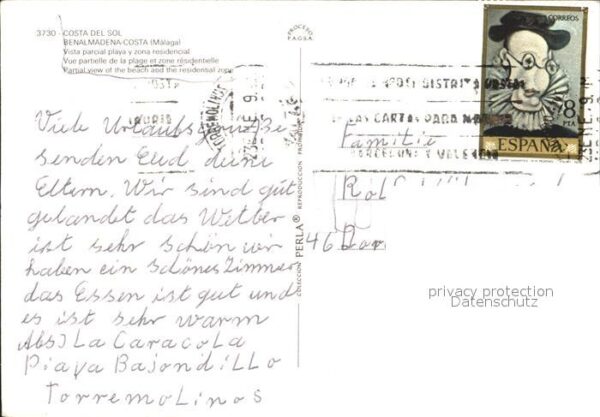 3730 - COSTA DEL SOL
BENALMADENA-COSTA (Málaga)
Vista parcial playa y zona residencial
Vue partielle de la plage et zone résidentielle
Partial view of the beach and the residensal zone
PROCESO
FAGSA
CORREOS
8
PTA
ESPAÑA
DISTRITO POSTAL
LAS CARTAS PARA MADRID
BARCELONA Y VALENCIA
TORREMOLINOS
COLECCION PERLA® REPRODUCCION
Viele Urlaubsgrüße
senden Eud deine
Eltern. Wir sind gut
gelandet das Wetber
ist sehr schön wir
haben ein schönes Zimmer
das Essen ist gut und
es ist sehr warm
Abs) La Caracola
Piaya Bajondillo
Torremolinos
Familie
Rol
46 Dor
privacy protection
Datenschutz